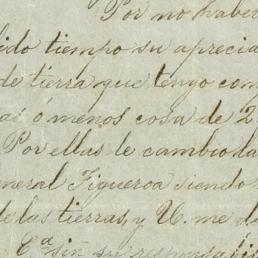 Por no haber
ido tiempo su aprecia
de tierra que tengo com
as ó menos cosa de 2
Por ellas le cambio la
eneral Figueroa siendo
de las tierras, y U. me d
Cª sin su responsabi